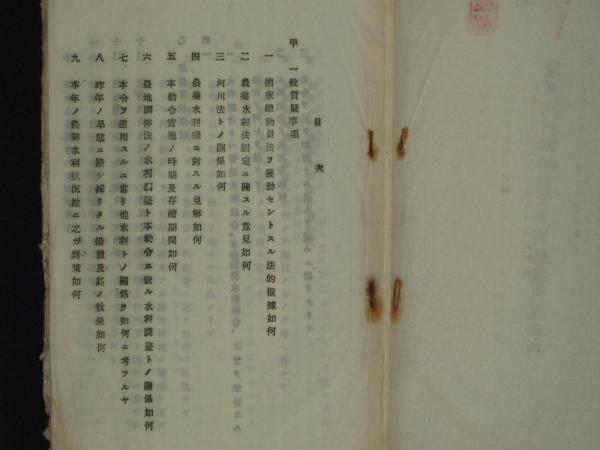 目次
甲 一般質疑事項
一 國家總動員法ヲ發動セントスル法的根據如何
二 農業水利法制定ニ關スル意見如何
三 河川法トノ關係如何
四 農業水利權ニ對スル見解如何
五 本勅令實施ノ時期及存續期間如何
六 農地調停法ノ水利調整ト本勅令ニ依ル水利調整トノ關係如何
七 本令ヲ運用スルニ當リ他水利トノ關係ヲ如何ニ考フルヤ
八 昨年ノ旱魃ニ際シ採リタル措置及其ノ效果如何
九 本年ノ農業水利狀況竝ニ之ガ對策如何